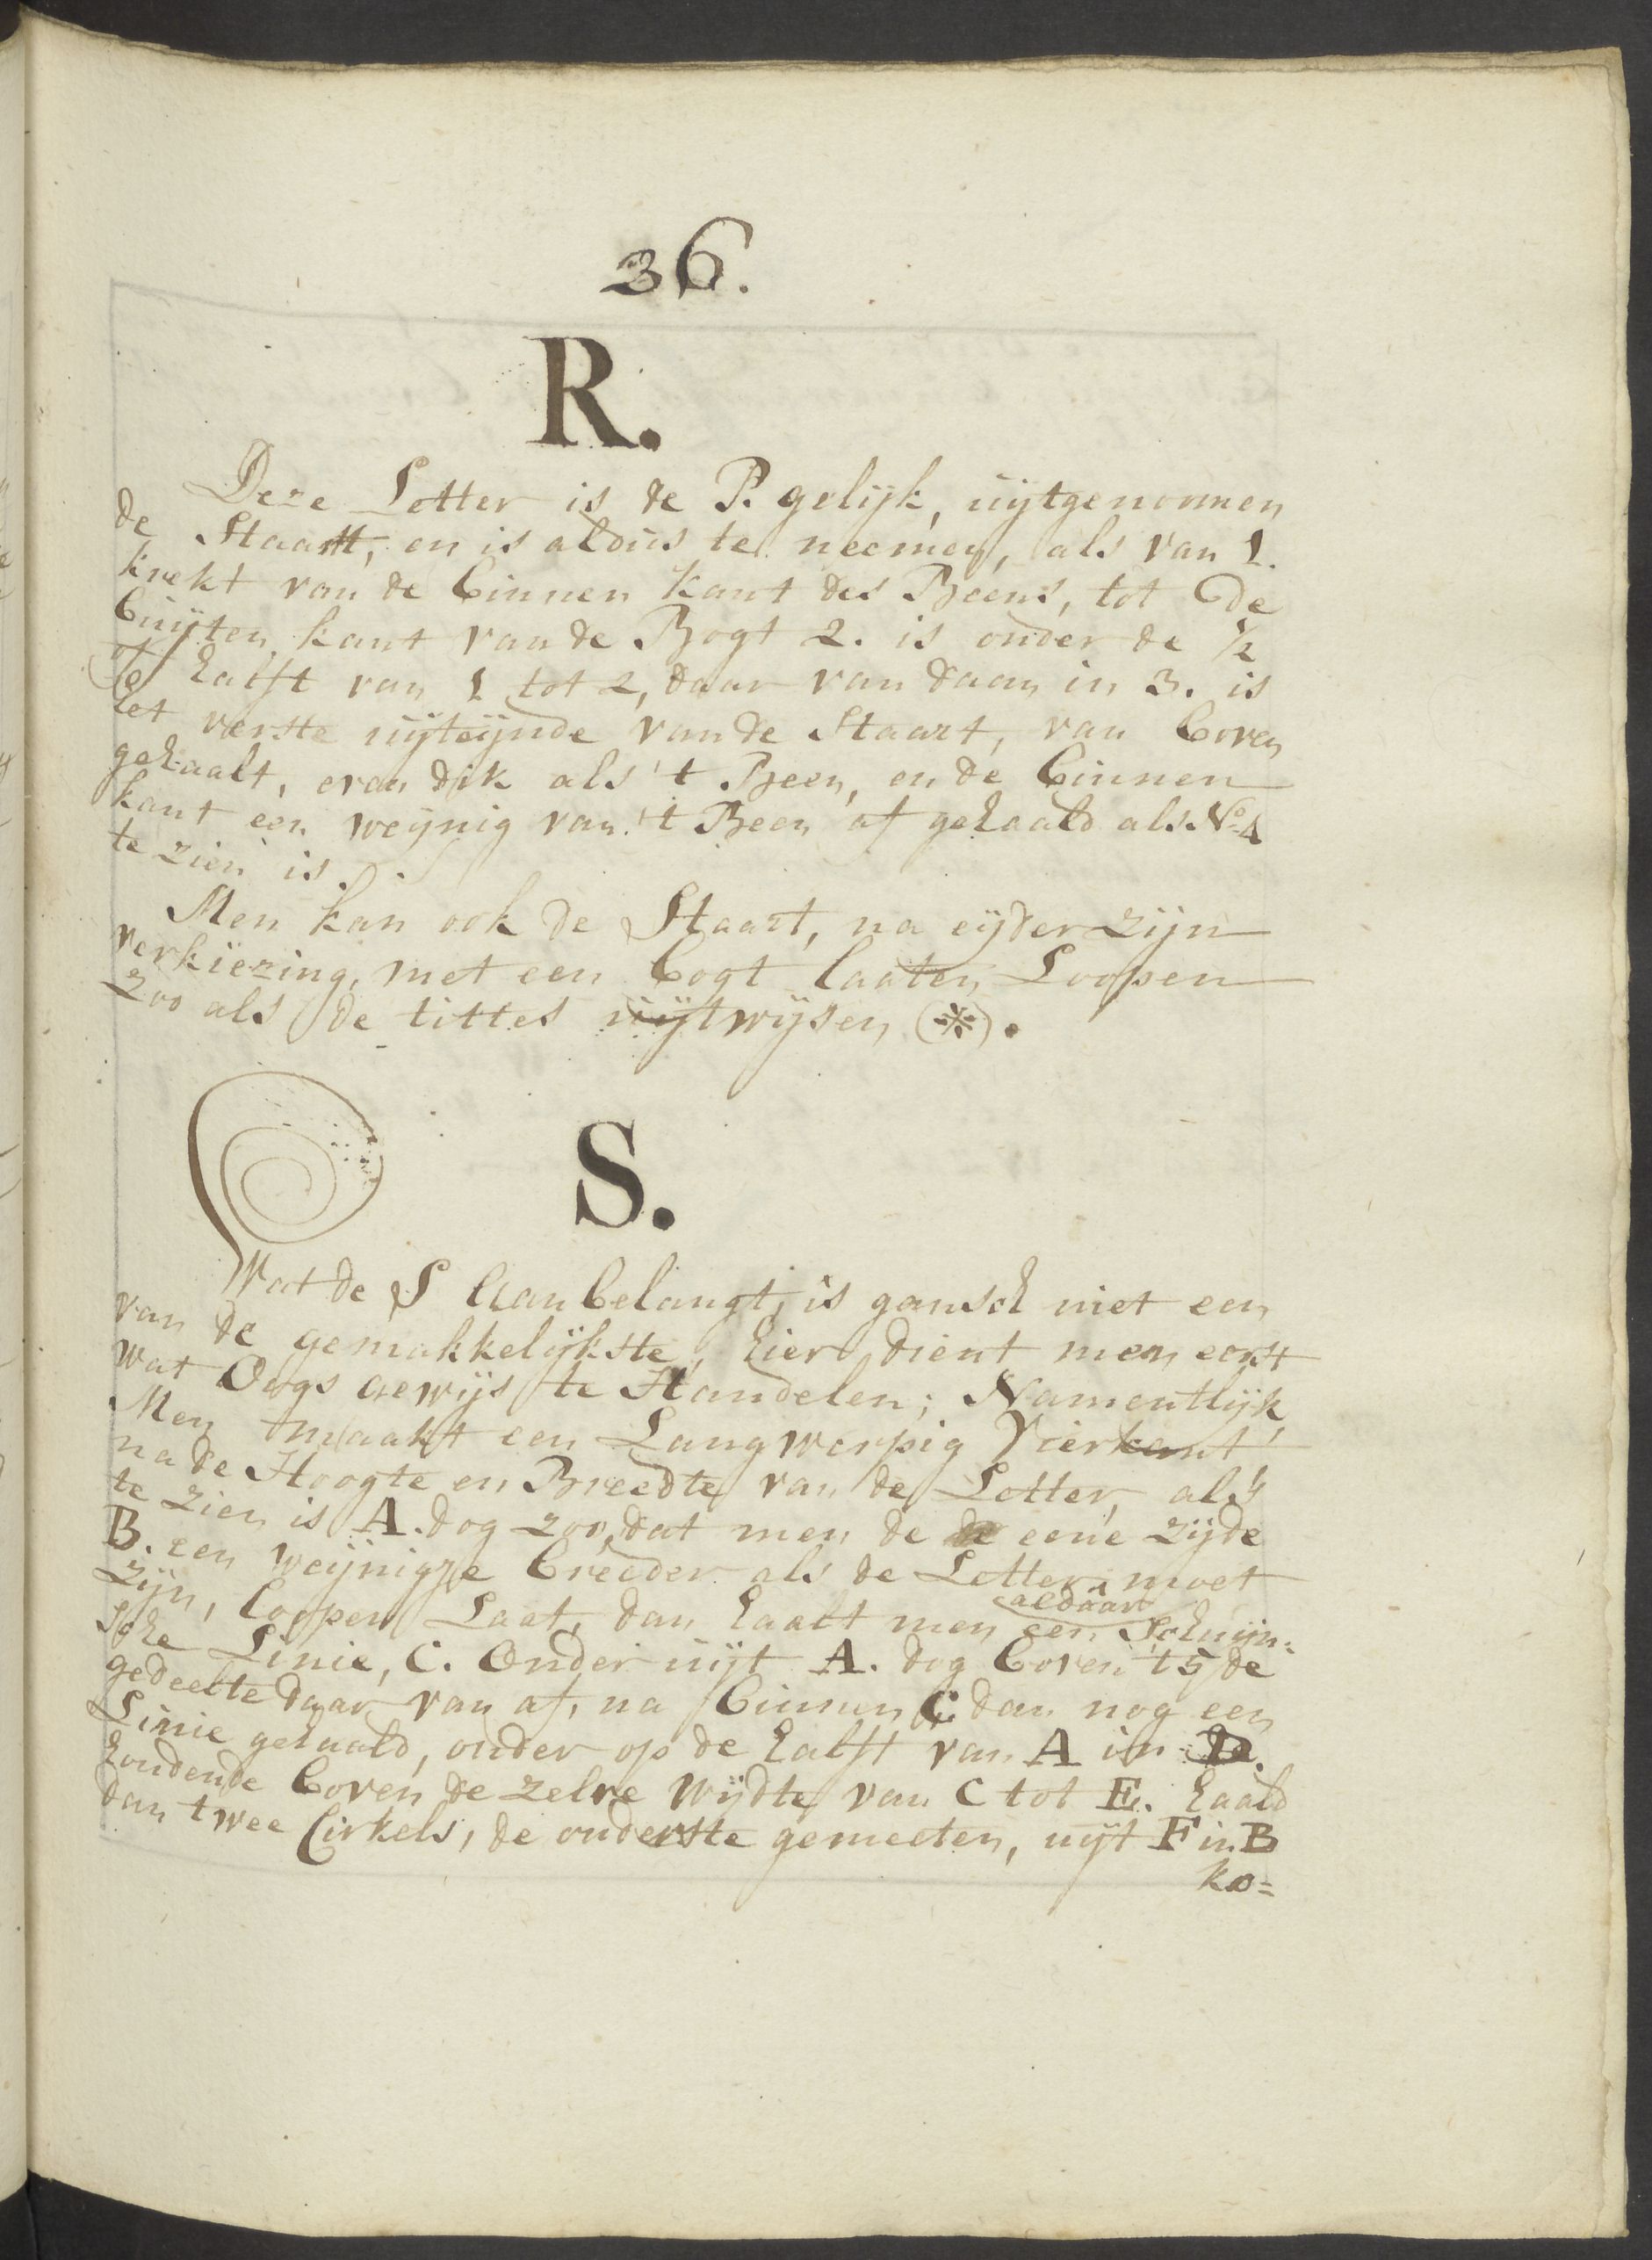 36.
R.
Deze Letter is de P. gelijk, uijtgenomen
de Staart, en is aldus te neemen, als van 1.
krekt van de binnen kant des Beens, tot de
buijten kant van de Bogt 2. is onder de 1/2
of halft van 1 tot 2, daar van daan in 3. is
het verste uijteijnde van de Staart, van boven
gehaalt, even dik als 't Been, en de binnen
kant een weijnig van 't Been af gehaald als No. 4
te zien is.
Men kan ook de Staart, na eijder zijn
verkiezing, met een bogt laaten Loopen
zoo als de tittes uijtwijsen (*).
S.
Wat de S aanbelangt, is gansch niet een
van de gemakkelijkste, hier dient men eerst
wat Oogs gewijs te Handelen; Namentlijk,
Men maakt een Langwerpig Vierkant,
na de Hoogte en Breedte van de Letter, als
te zien is A. dog zoo, dat men de de eene zijde
B. een weijnigje breeder als de Letter moet
zijn, loopen Laat, dan haalt men aldaar een Schuijn=
sche Linie, C. Onder uijt A. dog boven 't 5de
gedeelte daar van af, na binnen C. dan nog een
Linie gehaald, onder op de halft van A in D.
houdende boven de zelve wijdte van C tot E. haald
dan twee Cirkels, de onderste gemeeten, uijt F in B
ko=